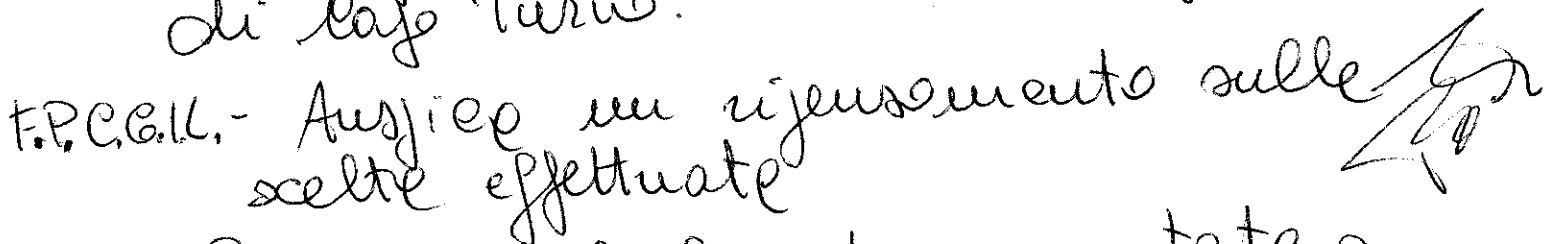 di Capo Turno.
F.P.C.G.I.L.- Auspica un ripensamento sulle
scelte effettuate